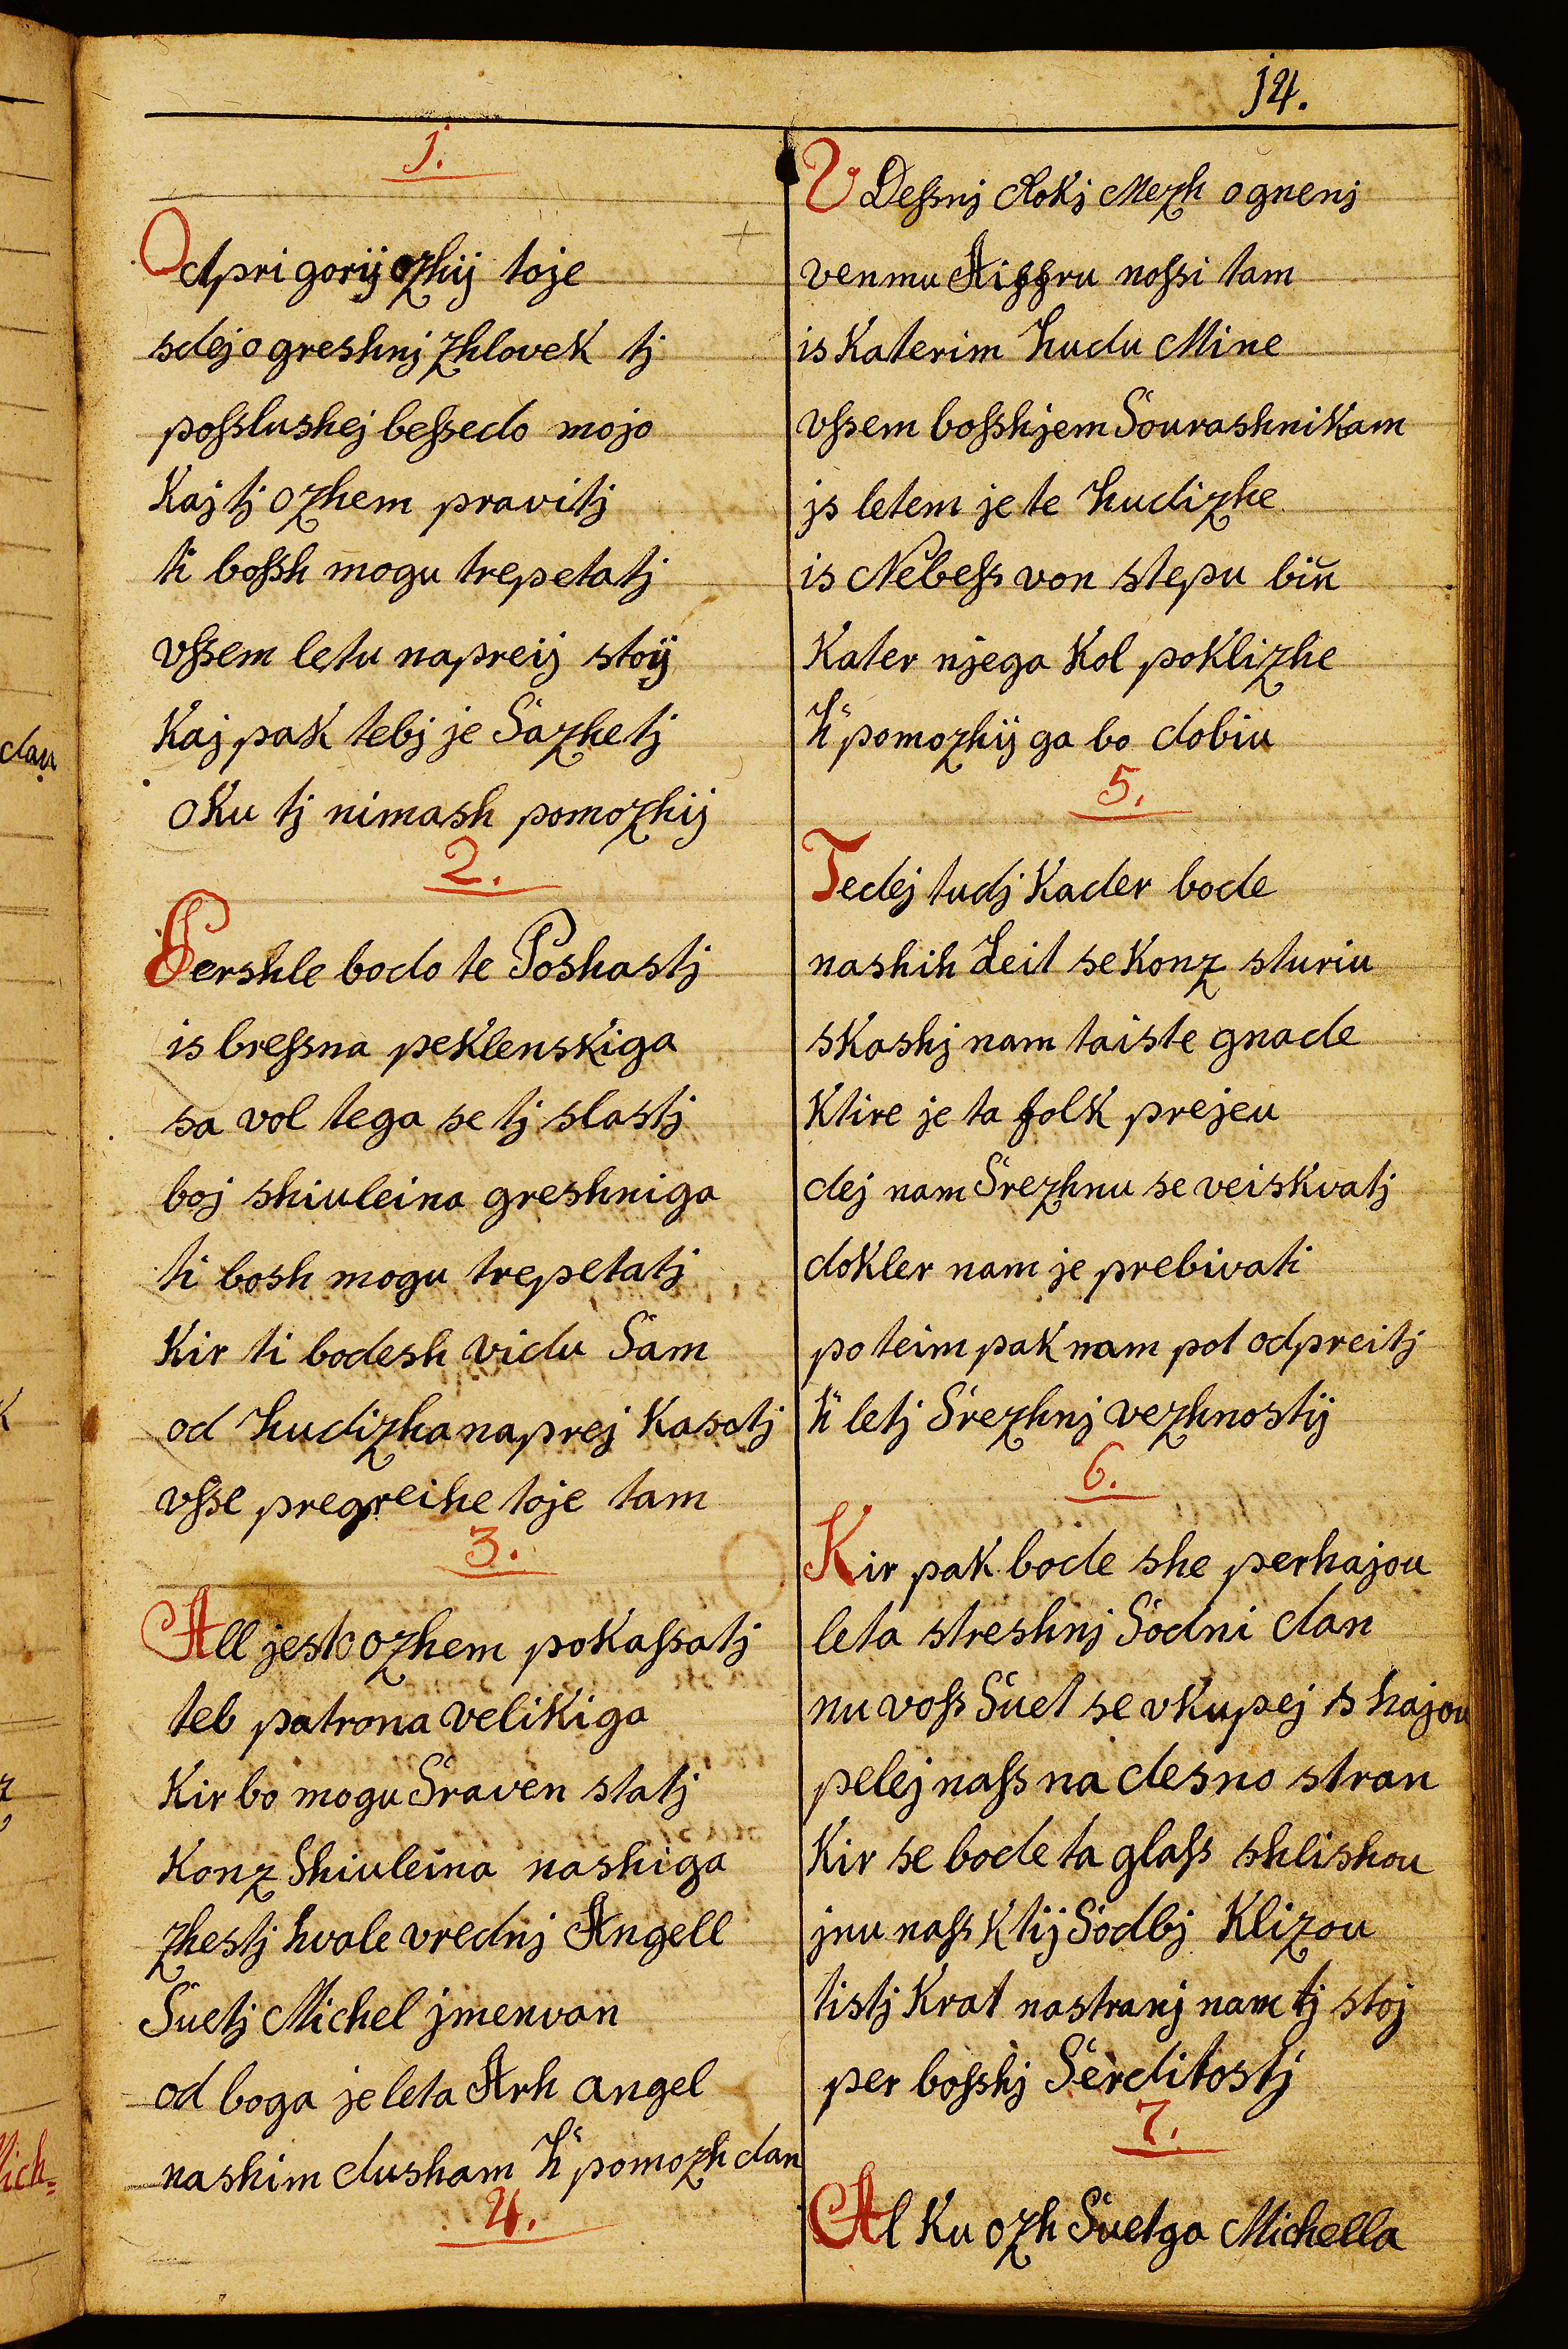 j4.
j.
Odpri gorij ozhij toje
sdej o greshnj zhlovek tj
poſslushej beſsedo mojo
Kaj tj ozhem pravitj
ti boſsh mogu trepetatj
vſsem letu napreij stoij
Kaj pak tebj je Sazhetj
oKu tj nimash pomozhij
2.
Pershle bodo te Poshastj
is breſsna peklenskiga
sa vol tega se tj slastj
boj shiuleina greshniga
ti bosh mogu trepetatj
Kir ti bodesh vidu Sam
od hudizha naprej Kasatj
vſse pregreihe toje tam
3.
All jest ozhem pokaſsatj
teb patrona velikiga
Kir bo mogu Sraven statj
Konz Shiuleina nashiga
zhestj hvale vrednj Angell
Suetj Michel jmenvan
od boga je leta Arh angel
nashim dusham h' pomozh dan
4.
V Deſsnj Rokj Mezh ognenj
ven mu Aiffru noſsi tam
is Katerim hudu Mine
vſsem boſshjem Sourashnikam
js letem je te hudizhe
is Nebeſs von stepu biu
Kater njega Kol poklizhe
h' pomozhij ga bo dobiu
5.
Tedej tudj Kader bode
nashih Leit se Konz sturiu
skashj nam taiste gnade
Ktire je ta folk prejeu
dej nam Srezhnu se veiskvatj
dokler nam je prebivati
po teim pak nam pot odpreitj
h' letj Srezhnj vezhnostij
6.
Kir pak bode she perhajou
leta streshnj Sodni dan
nu voſs Suet se vkupej s hajou
pelej naſs na desno stran
Kir se bode ta glaſs shlishou
jnu naſs Ktij Sodbj Klizou
tistj Krat na stranj nam tj stoj
per boſshj Serditostj
7.
Al Ku ozh Suetga Michella
dan